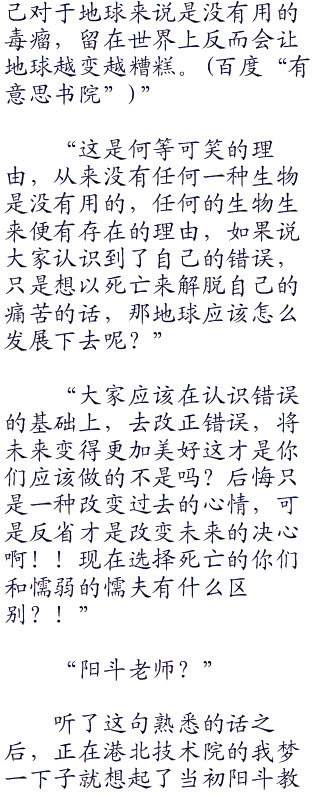 己对于地球来说是没有用的
毒瘤，留在世界上反而会让
地球越变越糟糕。(百度“有
意思书院”)”
“这是何等可笑的理
由，从来没有任何一种生物
是没有用的，任何的生物生
来便有存在的理由，如果说
大家认识到了自己的错误，
只是想以死亡来解脱自己的
痛苦的话，那地球应该怎么
发展下去呢？”
“大家应该在认识错误
的基础上，去改正错误，将
未来变得更加美好这才是你
们应该做的不是吗？后悔只
是一种改变过去的心情，可
是反省才是改变未来的决心
啊！！现在选择死亡的你们
和懦弱的懦夫有什么区
别？！”
“阳斗老师？”
听了这句熟悉的话之
后，正在港北技术院的我梦
一下子就想起了当初阳斗教